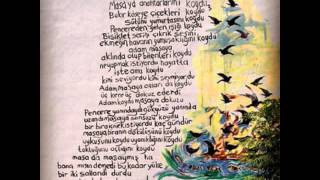 Masaya anahtarlarını koydu
Bakır kaseye çiçekleri koydu
Sütünü yumurtasını koydu
Pencereden gelen ışığı koydu
Bisiklet sesini çıkrık sesini
ekmeğin havanın yumuşaklığını koydu
adam masaya
aklında olup bitenleri koydu
ne yapmak istiyordu hayatta
işte onu koydu
kimi seviyordu kimi sevmiyordu
Adam masaya onları da koydu
üç kere üç dokuz ederdi
Adam koydu masaya dokuzu
Pencere yanındaydı gökyüzü yanında
uzandı masaya sonsuzu koydu
bir bira içmek istiyordu kaç gündür
masaya biranın dökülüşünü koydu
uykusunu koydu uyanıklığını koydu
tokluğunu açlığını koydu
masa da masaymış ha
bana mısın demedi bu kadar yüke
bir iki sallandı durdu